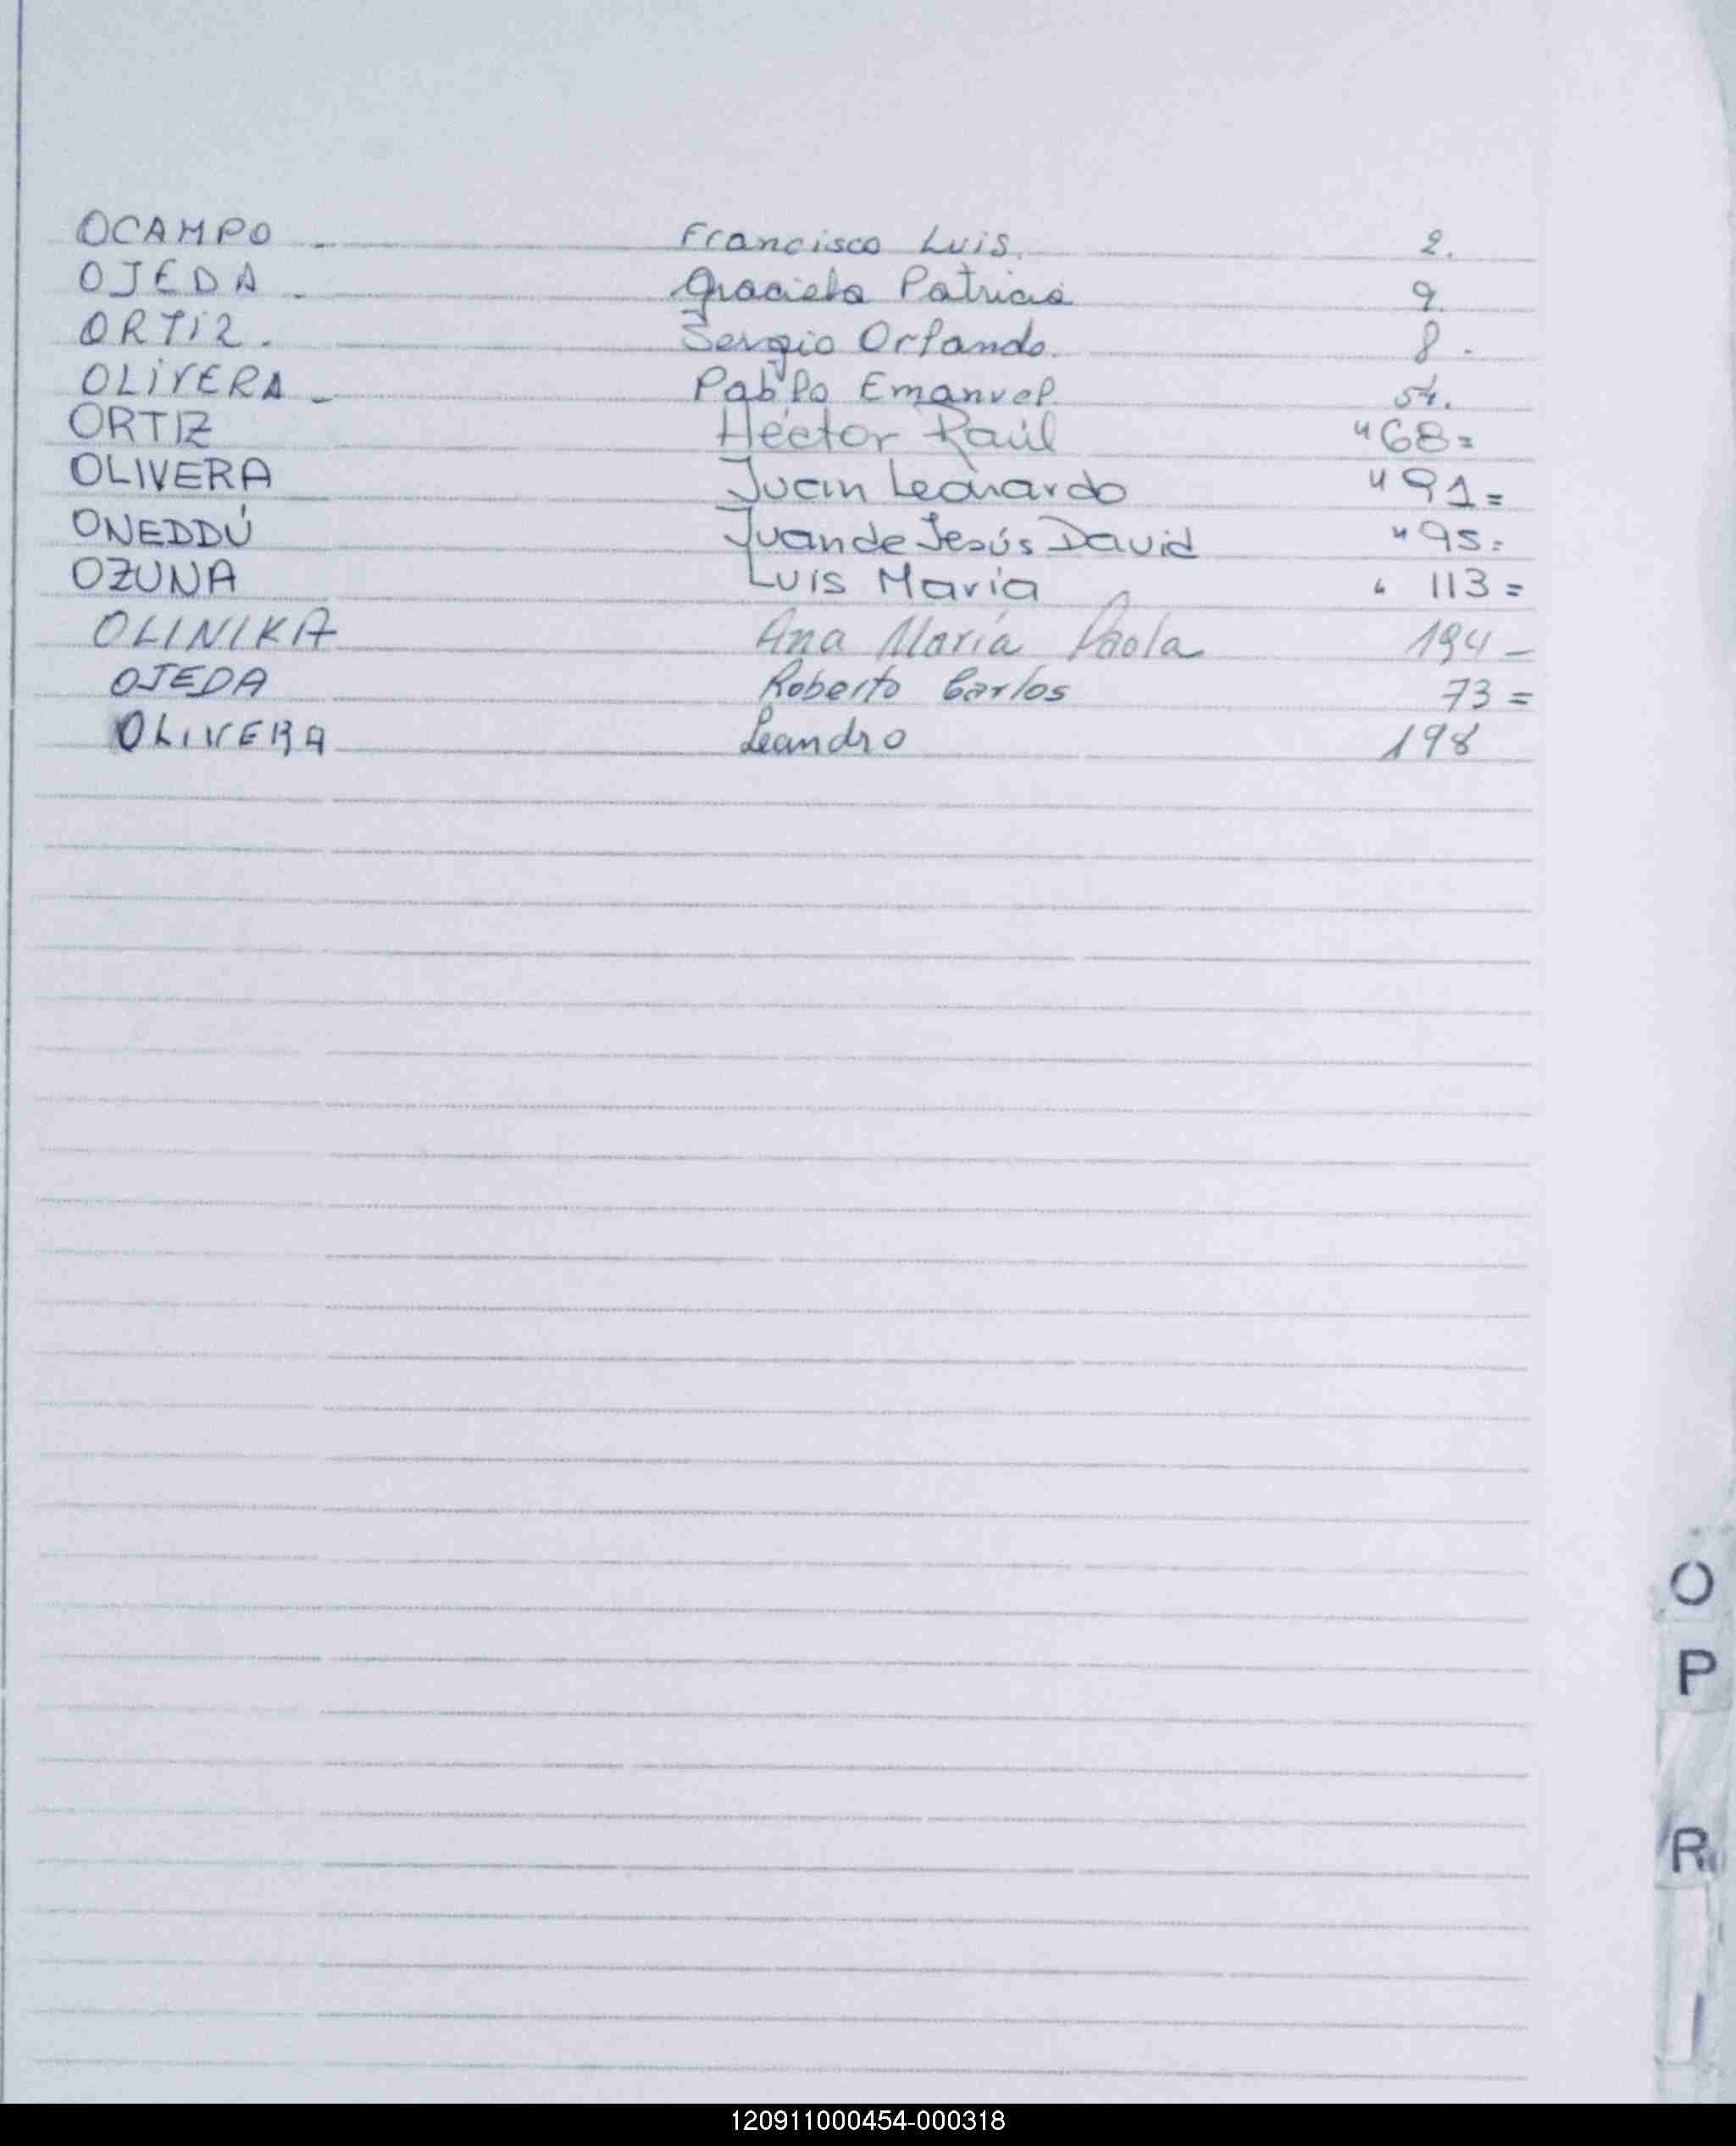 OCAMPO - Francisco Luis. 2.
OJEDA - Graciela Patricia 9.
ORTIZ. Sergio Orlando. 8 -
OLIVERA - Pablo Emanuel. 54.
ORTIZ Héctor Raúl " 68=
OLIVERA Juan Leonardo " 91=
ONEDDÚ Juan de Jesús David " 95=
OZUNA Luis María " 113=
OLINIKA Ana María Paola 194-
OJEDA Roberto Carlos 73=
OLIVERA Leandro 198
O
P
R
120911000454-000318